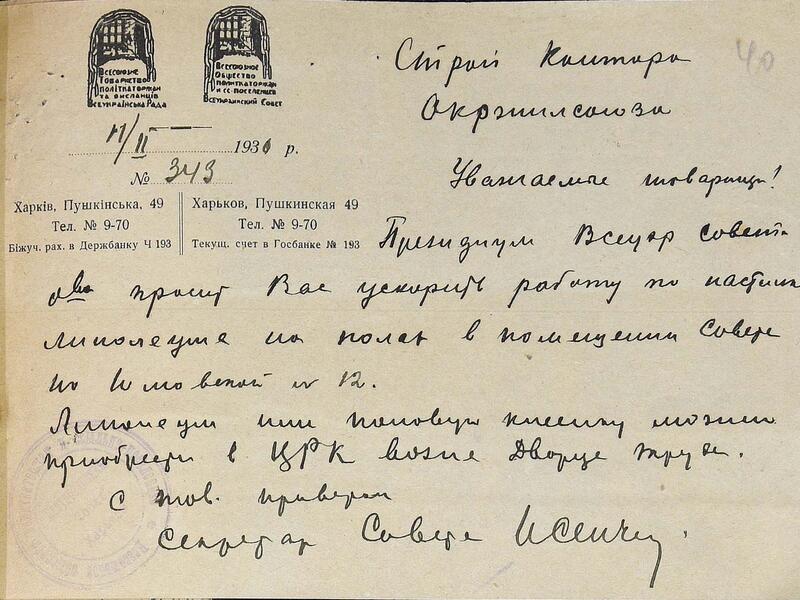 Всесоюзне
Товариство
політкаторжан
та висланців
Всеукраїнська Рада
Всесоюзное
Общество
политкаторжан
и сс-поселенцев
Всеукраинский Совет
11/II 1931 р.
№ 343
Харків, Пушкінська, 49
Тел. № 9-70
Біжуч. рах. в Держбанку Ч 193
Харьков, Пушкинская 49
Тел. № 9-70
Текущ. счет в Госбанке № 193
40
Строй Контора
Окржилсоюза
Уважаемые товарищи!
Президиум Всеукр Совета
о-ва просит Вас ускорить работу по настилке
линолеума на полах в помещении Совета
по № 12.
Линолеум или половую клеенку можно
приобрести в ЦРК возле Дворца труда.
С тов. приветом
Секретарь Совета